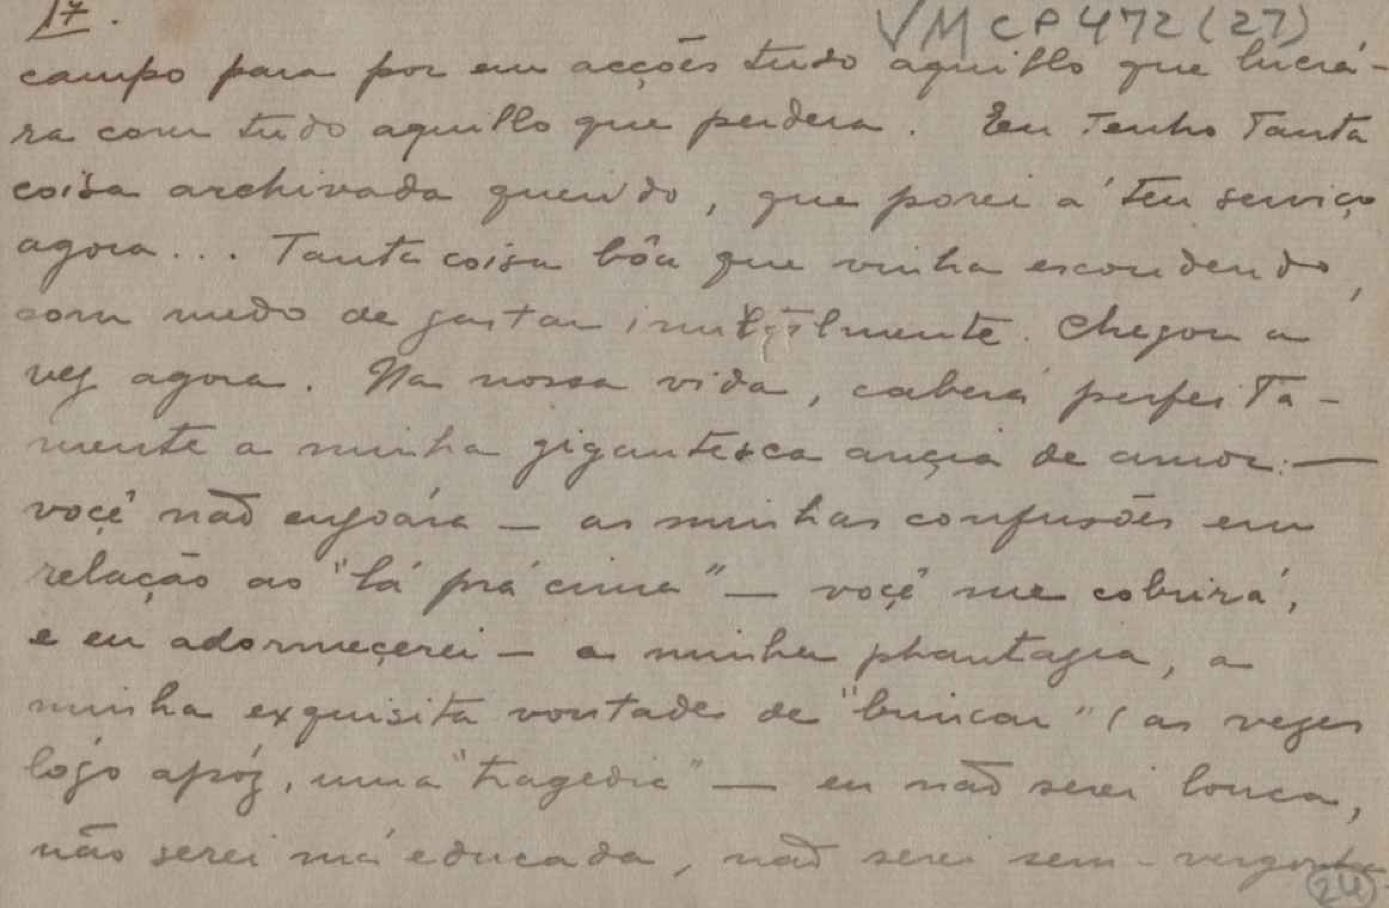 17.
VM CP 472 (27)
campo para por em acções tudo aquillo que lucrá-
ra com tudo aquillo que perdera. Eu tenho tanta
coisa archivada querido, que porei á teu serviço
agora... Tanta coisa bôa que vinha escondendo,
com medo de gastar inutilmente. Chegou a
vez agora. Na nossa vida, caberá perfeita-
mente a minha gigantesca ançia de amor: —
voçê não enjoára — as minhas confusões em
relação ao "lá prá cima" — voçê me cobrirá,
e eu adormeçerei — a minha phantasia, a
minha exquisita vontade de "brincar" (as vezes
lógo apóz, uma "tragedia" — eu não serei louca,
não serei má educada, não serei sem-vergonha
24